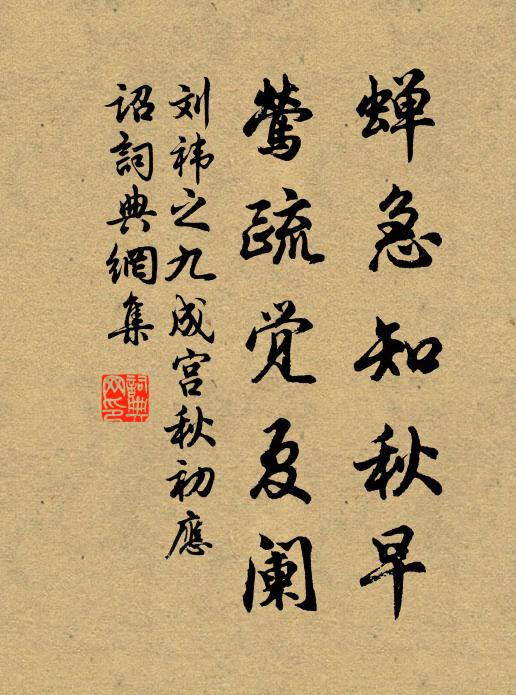 蝉急知秋早
莺疏觉夏阑
刘祎之九成宫秋初應
诏詞典網集
詞典网印